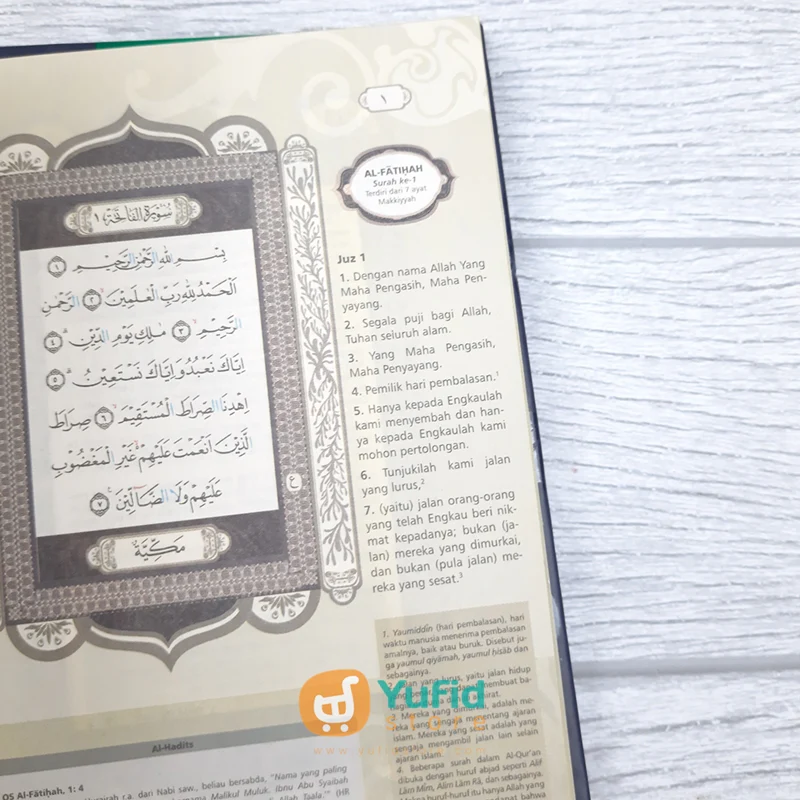 ١
سُورَةُ الْفَاتِحَةِ ١
بِسْمِ اللّٰهِ الرَّحْمٰنِ الرَّحِيْمِ ١
اَلْحَمْدُ لِلّٰهِ رَبِّ الْعٰلَمِيْنَ ٢ الرَّحْمٰنِ
الرَّحِيْمِ ٣ مٰلِكِ يَوْمِ الدِّيْنِ ٤
اِيَّاكَ نَعْبُدُ وَاِيَّاكَ نَسْتَعِيْنُ ٥
اِهْدِنَا الصِّرَاطَ الْمُسْتَقِيْمَ ٦ صِرَاطَ
الَّذِيْنَ اَنْعَمْتَ عَلَيْهِمْ غَيْرِ الْمَغْضُوْبِ
عَلَيْهِمْ وَلَا الضَّاۤلِّيْنَ ٧
ع
مَكِّيَّة
AL-FĀTIḤAH
Surah ke-1
Terdiri dari 7 ayat
Makkiyyah
Juz 1
1. Dengan nama Allah Yang
Maha Pengasih, Maha Pen-
yayang.
2. Segala puji bagi Allah,
Tuhan seluruh alam.
3. Yang Maha Pengasih,
Maha Penyayang.
4. Pemilik hari pembalasan.¹
5. Hanya kepada Engkaulah
kami menyembah dan han-
ya kepada Engkaulah kami
mohon pertolongan.
6. Tunjukilah kami jalan
yang lurus,²
7. (yaitu) jalan orang-orang
yang telah Engkau beri nik-
mat kepadanya; bukan (ja-
lan) mereka yang dimurkai,
dan bukan (pula jalan) me-
reka yang sesat.³
1. Yaumiddīn (hari pembalasan), hari
waktu manusia menerima pembalasan
amalnya, baik atau buruk. Disebut ju-
ga yaumul qiyāmah, yaumul hisāb dan
sebagainya.
yang lurus, yaitu jalan hidup
membuat ba-
2. Mereka yang dimurkai, adalah me-
reka yang sengaja menentang ajaran
islam. Mereka yang sesat adalah yang
sengaja mengambil jalan lain selain
ajaran islam.
4. Beberapa surah dalam Al-Qur'an
dibuka dengan huruf abjad seperti Alif
Lām Mīm, Alim Lām Rā, dan sebagainya.
huruf-huruf itu hanya Allah yang
bahwa
YuFid
store
Al-Hadits
QS Al-Fātiḥah, 1: 4
r.a. dari Nabi saw., beliau bersabda, "Nama yang paling
Malikul Muluk. Ibnu Abu Syaibah
Allah Taala." (HR